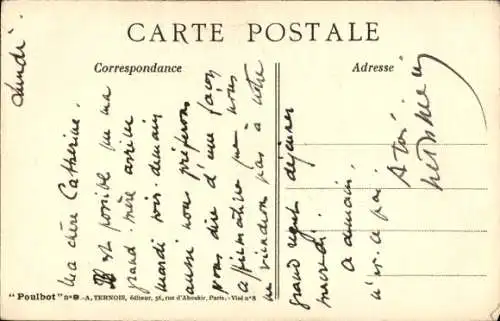 CARTE POSTALE
Correspondance
Adresse
Lundi
Ma chère Catherine.
Il est possible que ma
grand mère arrive
mardi soir. demain
aussi nous préférons
vous dire d'une façon
affirmative que nous
ne viendrons pas à notre
grand regret déjeuner
mardi.
à demain,
n'est-ce pas.
A toi
"Poulbot" n°9.-A. TERNOIS, éditeur, 56, rue d'Aboukir, Paris.-Visé n°8